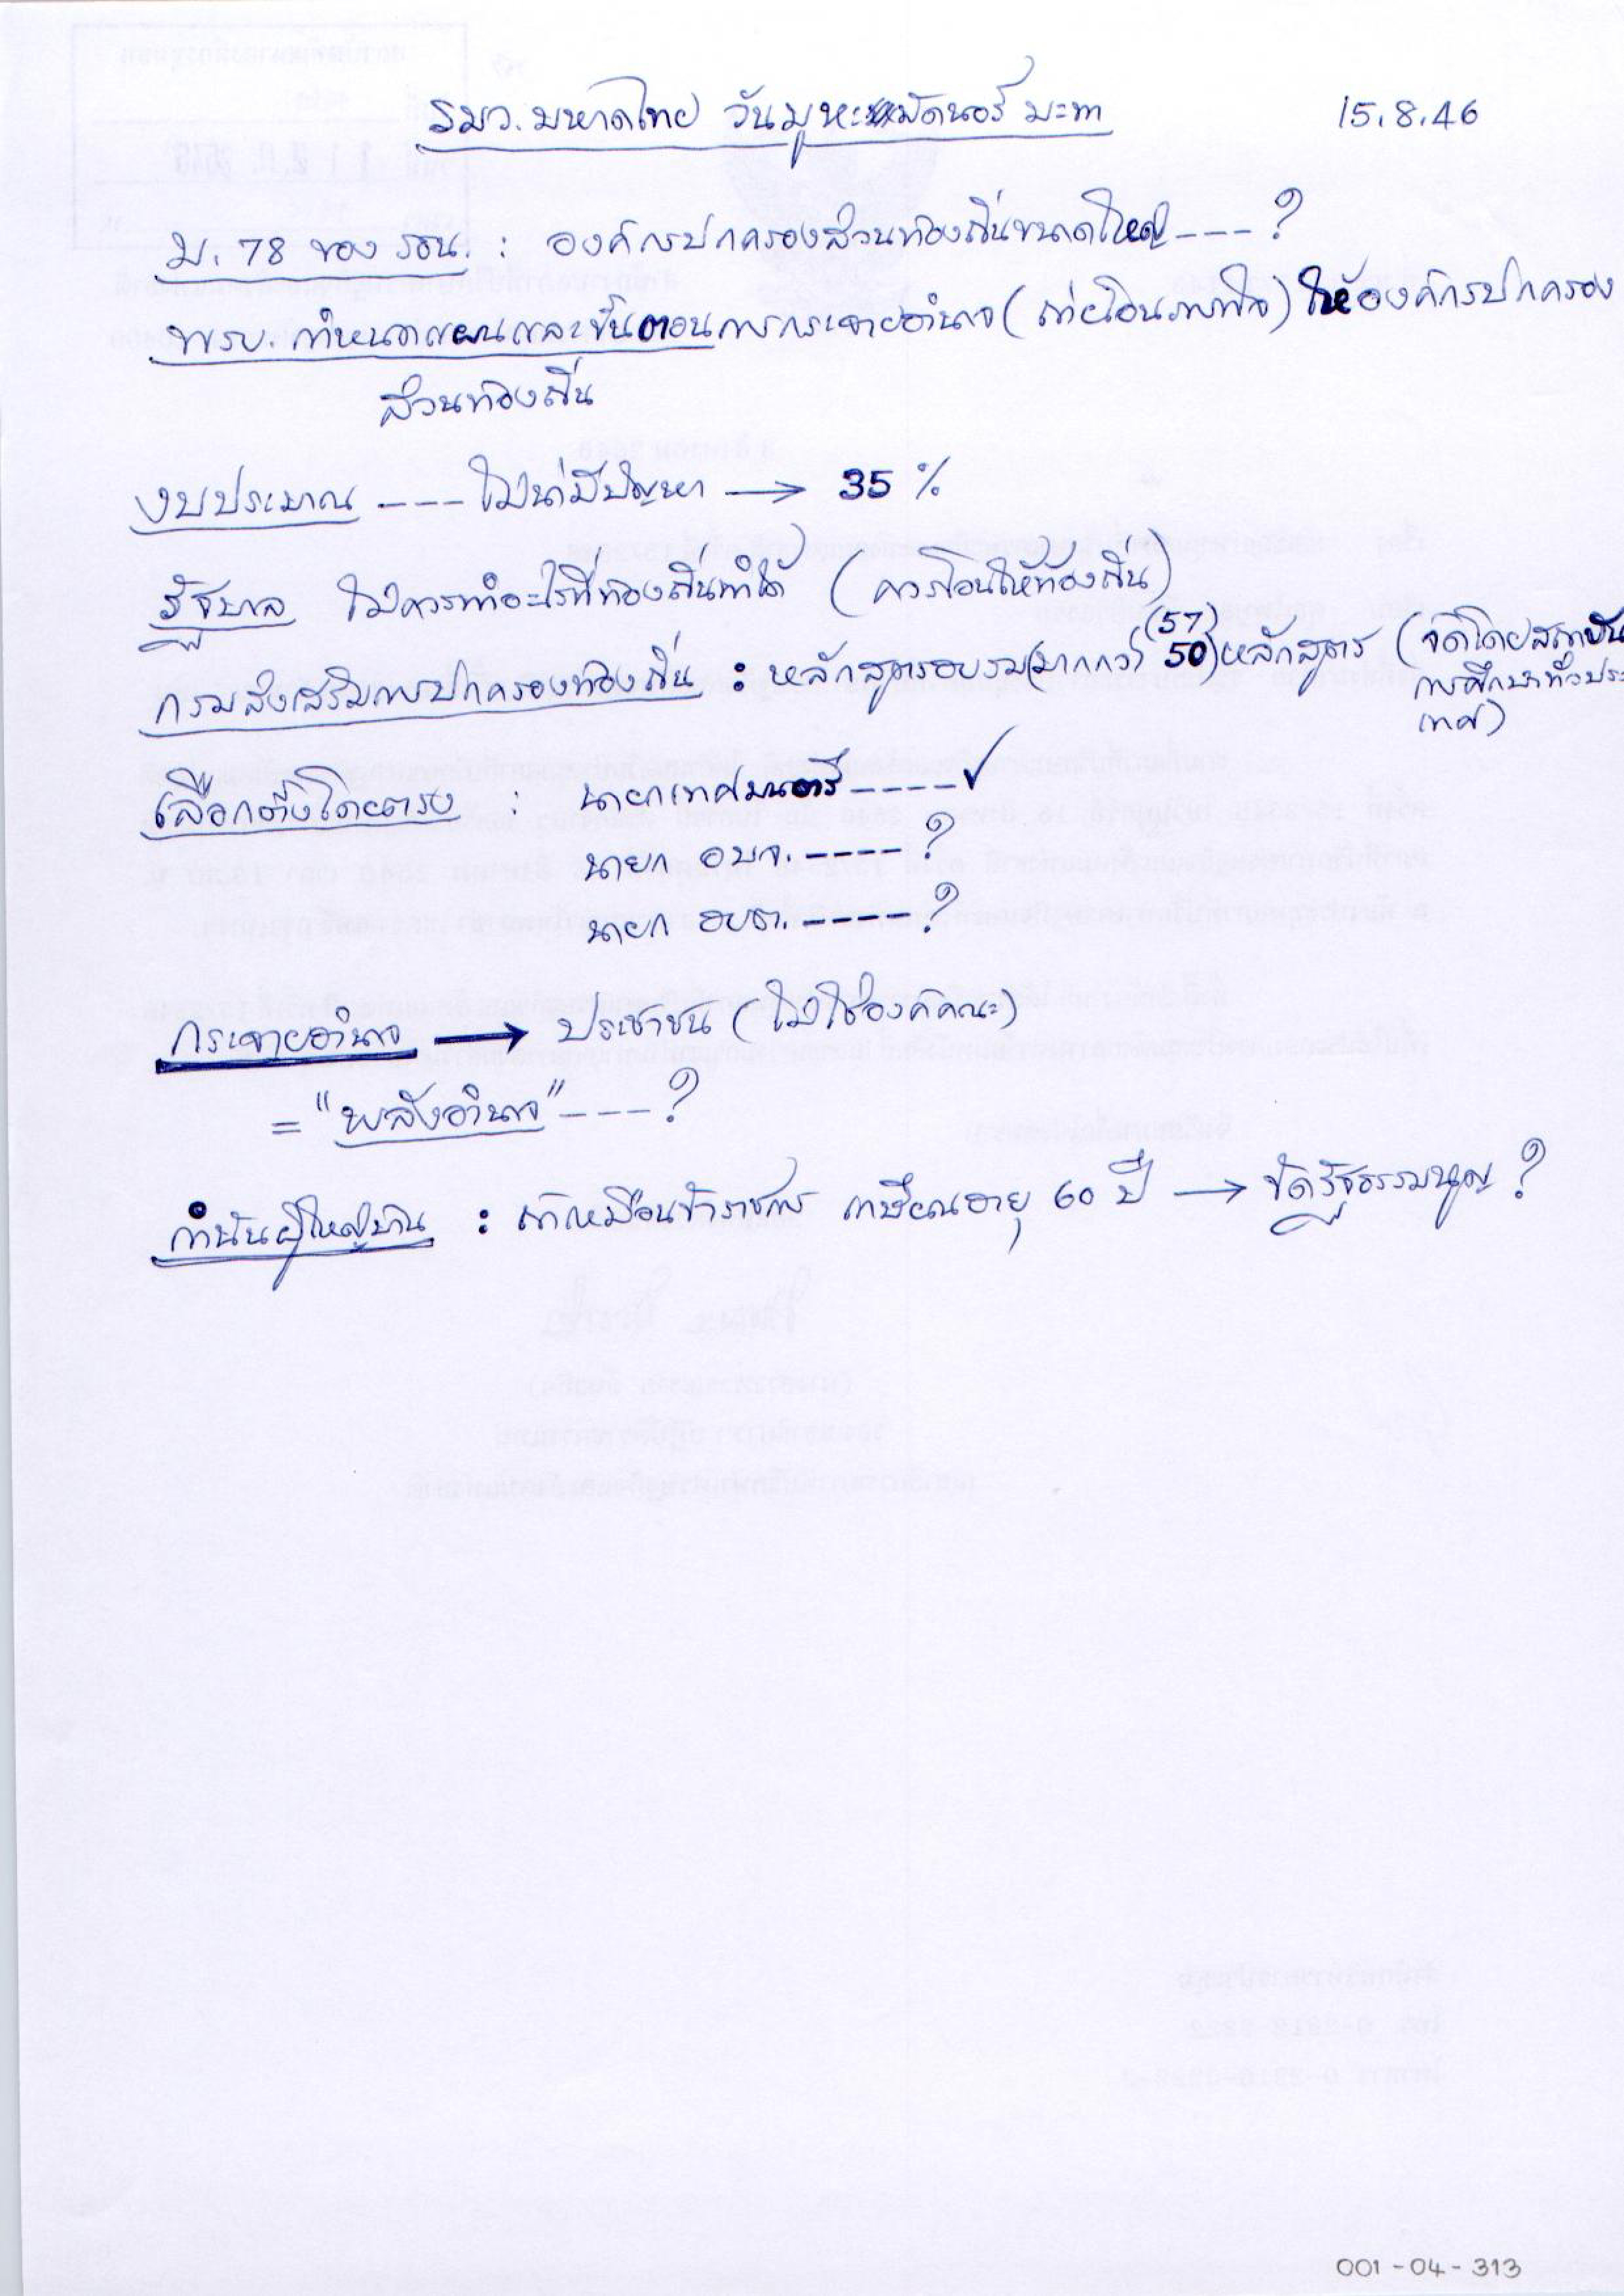 รมว.มหาดไทย วันมูหะมัดนอร์ มะทา 15.8.46
ม. 78 ของ รธน. : องค์กรปกครองส่วนท้องถิ่นขนาดใหญ่ ---- ?
พรบ. กำหนดแผนและขั้นตอนการกระจายอำนาจ (ถ่ายโอนภารกิจ) ให้องค์กรปกครอง
ส่วนท้องถิ่น
งบประมาณ ---- ไม่น่ามีปัญหา → 35 %
รัฐบาล ไม่ควรทำอะไรที่ท้องถิ่นทำได้ (ควรโอนให้ท้องถิ่น)
(57)
กรมส่งเสริมการปกครองท้องถิ่น : หลักสูตรอบรม (มากกว่า 50) หลักสูตร (จัดโดยสถาบัน
การศึกษาทั่วประ
เทศ)
เลือกตั้งโดยตรง : นายกเทศมนตรี ---- ✓
นายก อบจ. ---- ?
นายก อบต. ---- ?
กระจายอำนาจ → ประชาชน (ไม่ใช่องค์คณะ)
= "พลังอำนาจ" ---- ?
กำนันผู้ใหญ่บ้าน : ถ้าเหมือนข้าราชการ เกษียณอายุ 60 ปี → ขัดรัฐธรรมนูญ ?
001 - 04 - 313